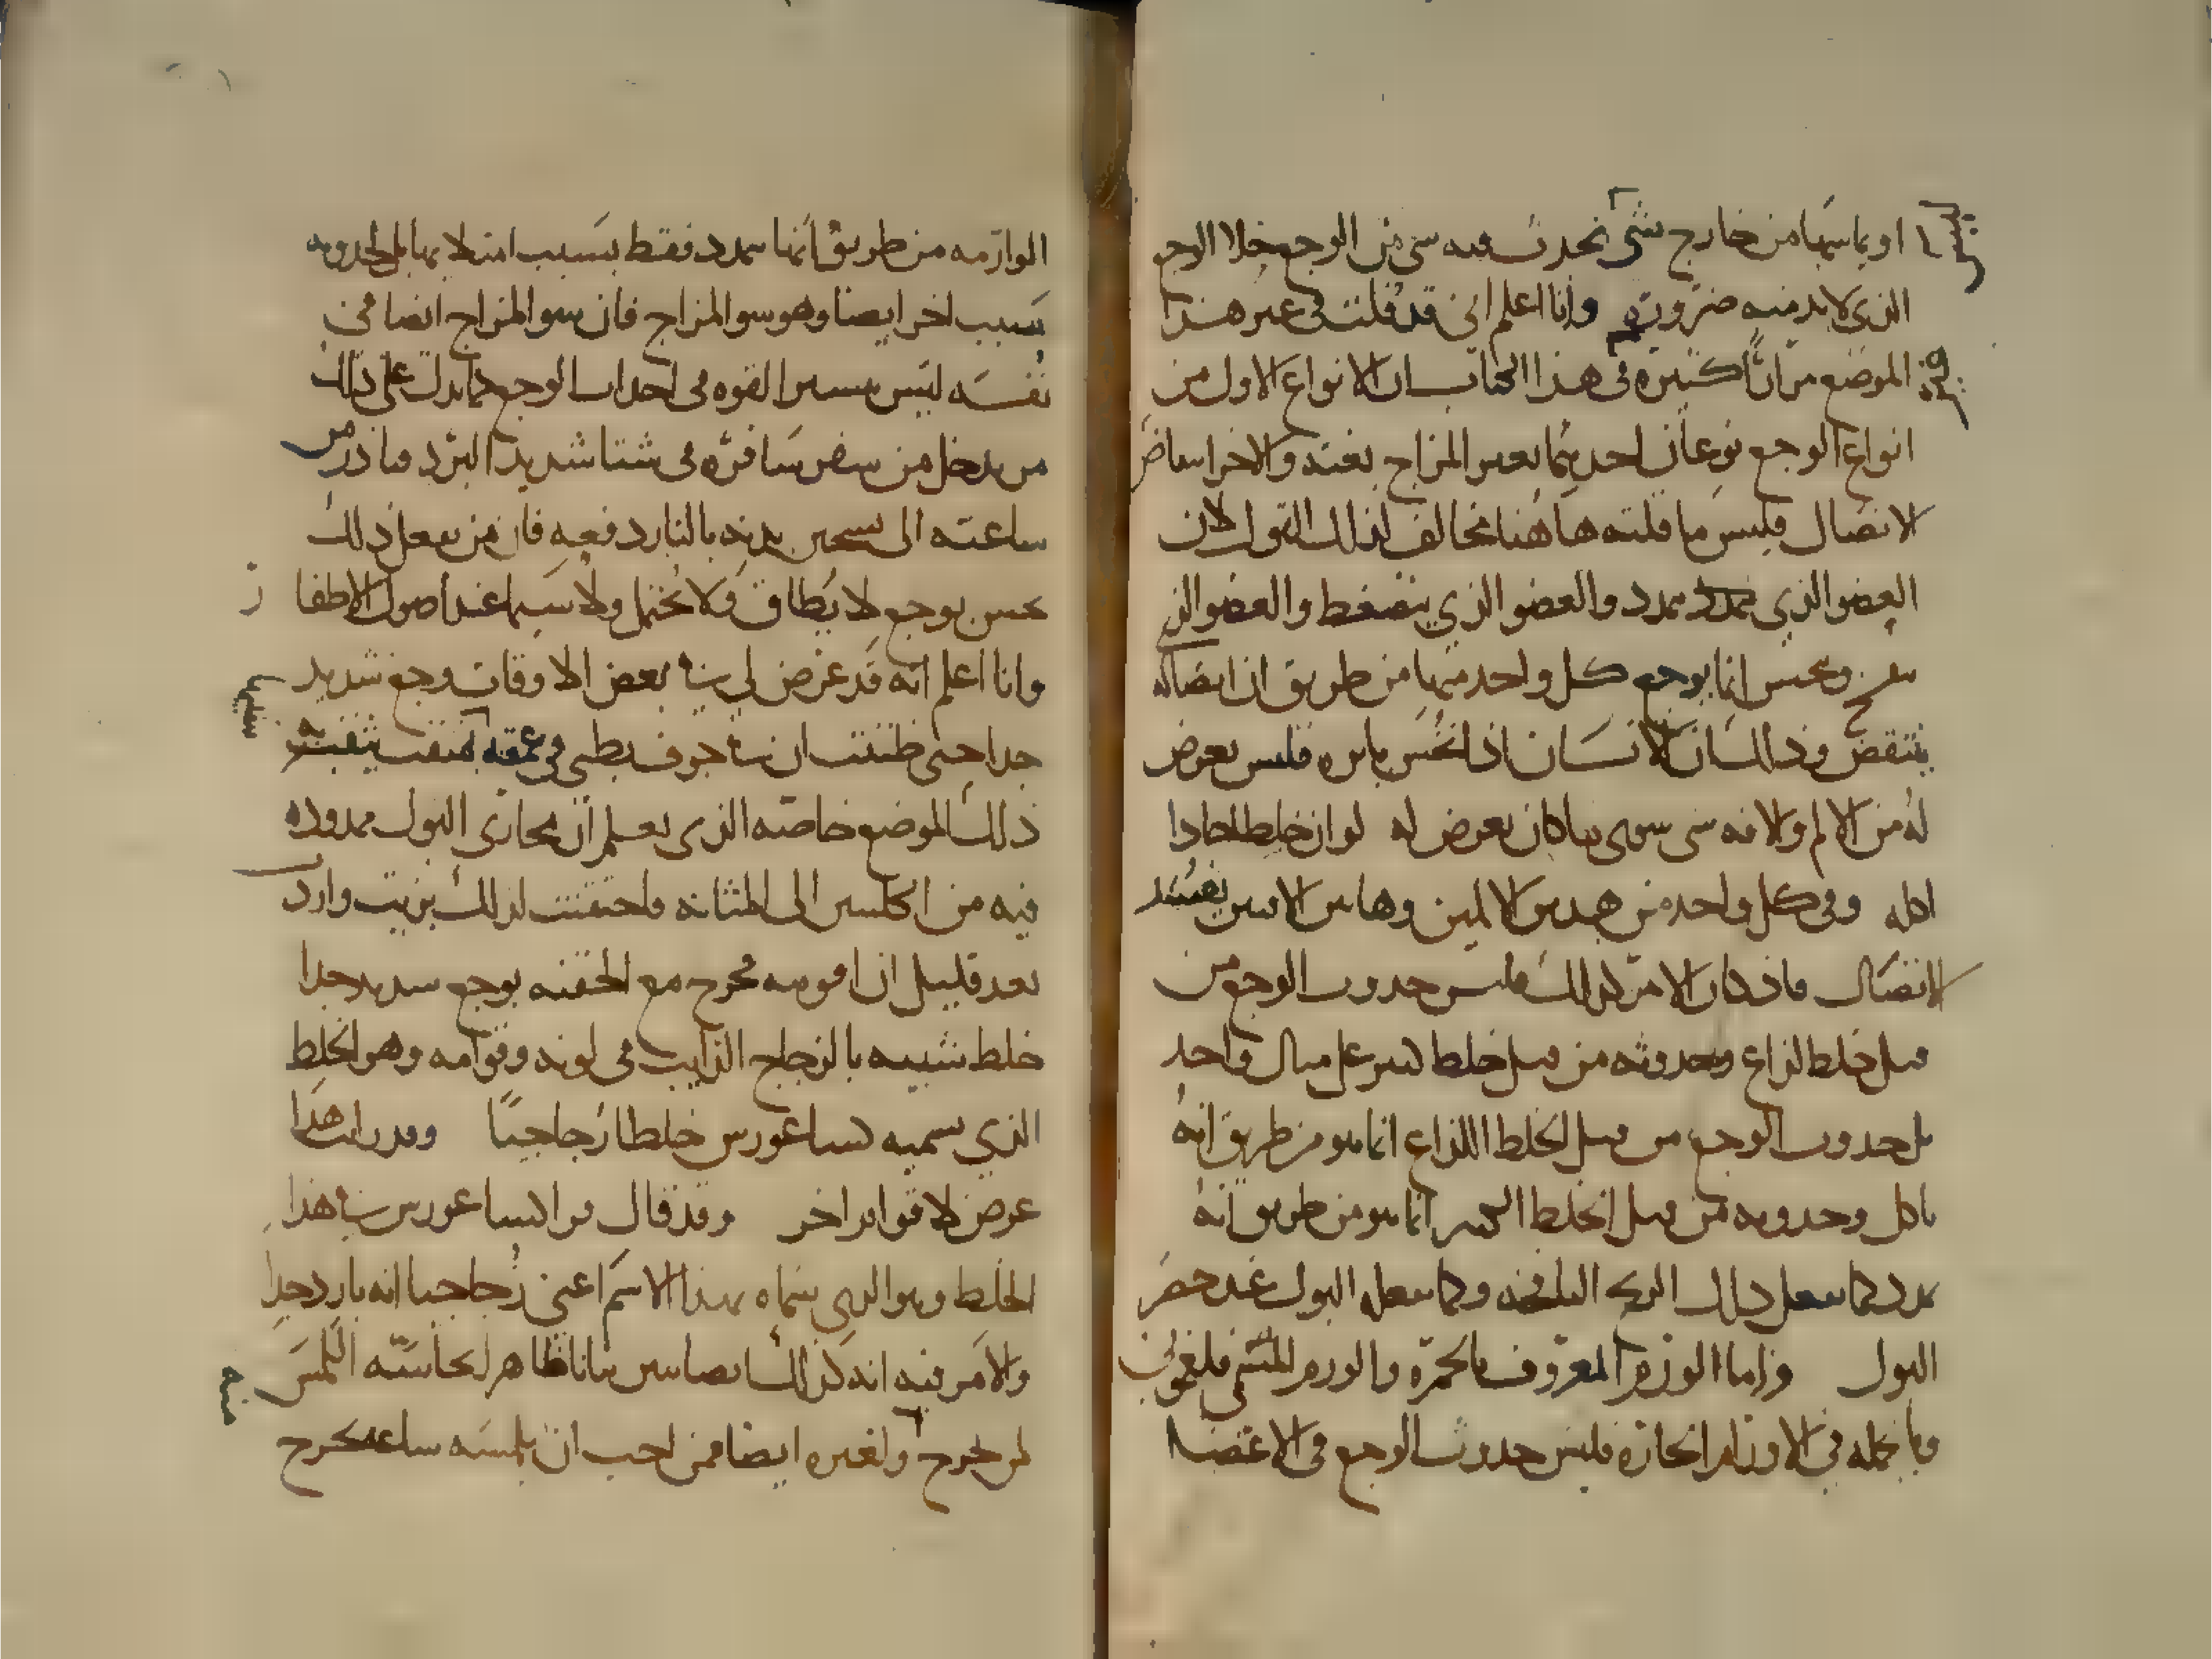 او يماسها من خارج شى يحدث فيه شى من الوجع خلا الوجع
الذى لا بد منه ضرورة وانا اعلم انى قد قلت فى غير هذا
الموضع مرارًا كثيرة فى هذا الكتاب ان الانواع الاول من
انواع الوجع نوعان احدهما تغير المزاج بغتة والاخر انتقاض
الاتصال فليس ما قلته هاهنا مخالف لذلك القول لان
العضو الذى يمدد والعضو الذي ينضغط والعضو الذي
وينخس انما يوجع كل واحد منها من طريق ان اتصاله
ينتقض وذلك ان الانسان اذا نخس بابره فليس يعرض
له من الالم ولا فه شى سوى ما كان يعرض له لو ان خلطا حادا
اكله وفى كل واحد من هذين الالمين وهاتين الافتين
الاتصال فاذ كان الامر كذلك فليس حدوث الوجع من
قبل خلط لذاع وحدوثه من قبل خلط كثير على مثال واحد
بل حدوث الوجع من قبل الخلط اللذاع انما هو من طريق انه
ياكل وحدوثه من قبل الخلط الكثير انما هو من طريق انه
يمدد كما يفعل ذلك الريح النافخه وكما يفعله البول عند حصر
البول واما الورم المعروف بالحمرة والورم المسمى فلغمونى
وبالجمله فى الاورام الحارة فليس حدوث الوجع فى الاعضا
الوارمه من طريق انها تمدد فقط بسبب امتلا بها بل لحدوثه
سبب اخر ايضا وهو سو المزاج فان سو المزاج ايضا فى
نفسه ليس بيسير القوه فى احداث الوجع كما يدل على ذلك
من يدخل من سفر سافره فى شتا شديد البرد فبادر من
ساعته الى تسخين يديه بالنار دفعه فان من يفعل ذلك
يحس بوجع لا يطاق ولا يحتمل ولا سيما عند اصول الاظفار
وانا اعلم انه قد عرض لى فى بعض الاوقات وجع شديد
جدا حتى ظننت ان فى جوف بطنى فى عمقه
ذلك الموضع خاصه الذى يعلم ان مجارى البول ممدوده
فيه من الكليتين الى المثانه فاحتقنت لذلك بزيت واردت
بعد قليل ان اقوم فخرج مع الحقنه بوجع شديد جدا
خلط شبيه بالزجاج الذايب فى لونه وقوامه وهو الخلط
الذي يسميه فراكساغورس خلطا زجاجيًا وقد رايت هذا
عرض لاقوام اخر وقد قال فراكساغورس فى هذا
الخلط وهو الذي سماه بهذا الاسم اعنى زجاجيا انه بارد جدا
والامر فيه انه كذلك ايضا بين بيانا ظاهر لحاسة اللمس
لمن خرج ولغيره ايضا ممن احب ان يلمسه ساعه يخرج